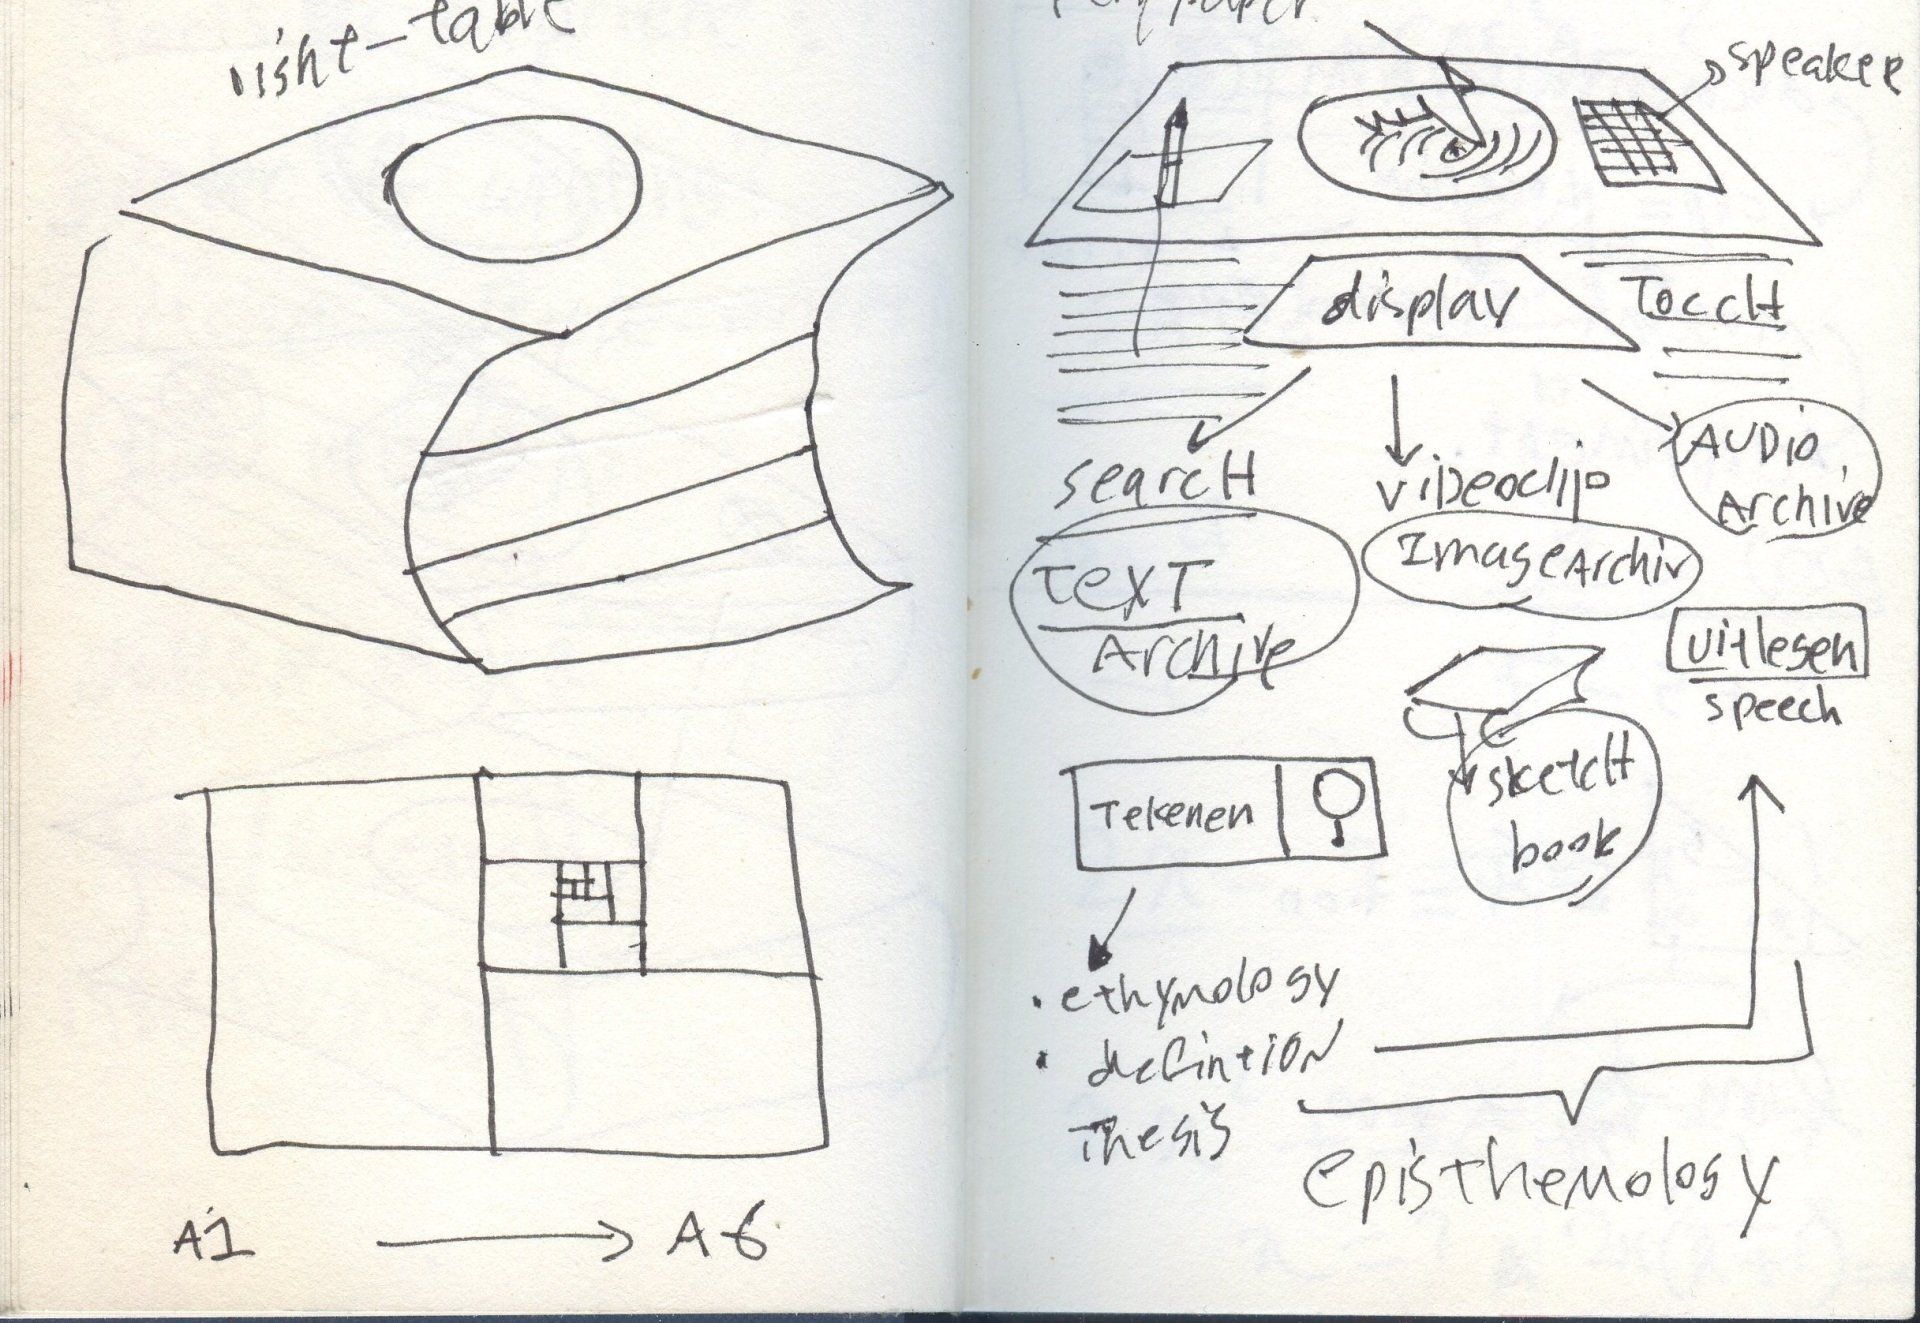 light-table
speaker
display
Toccht
search
Text
Archive
videoclip
ImageArchiv
AUDio
Archive
uitlesen
speech
Tekenen
sketch
book
• ethymology
• defintion
Thesis
episthemology
A1 → A6